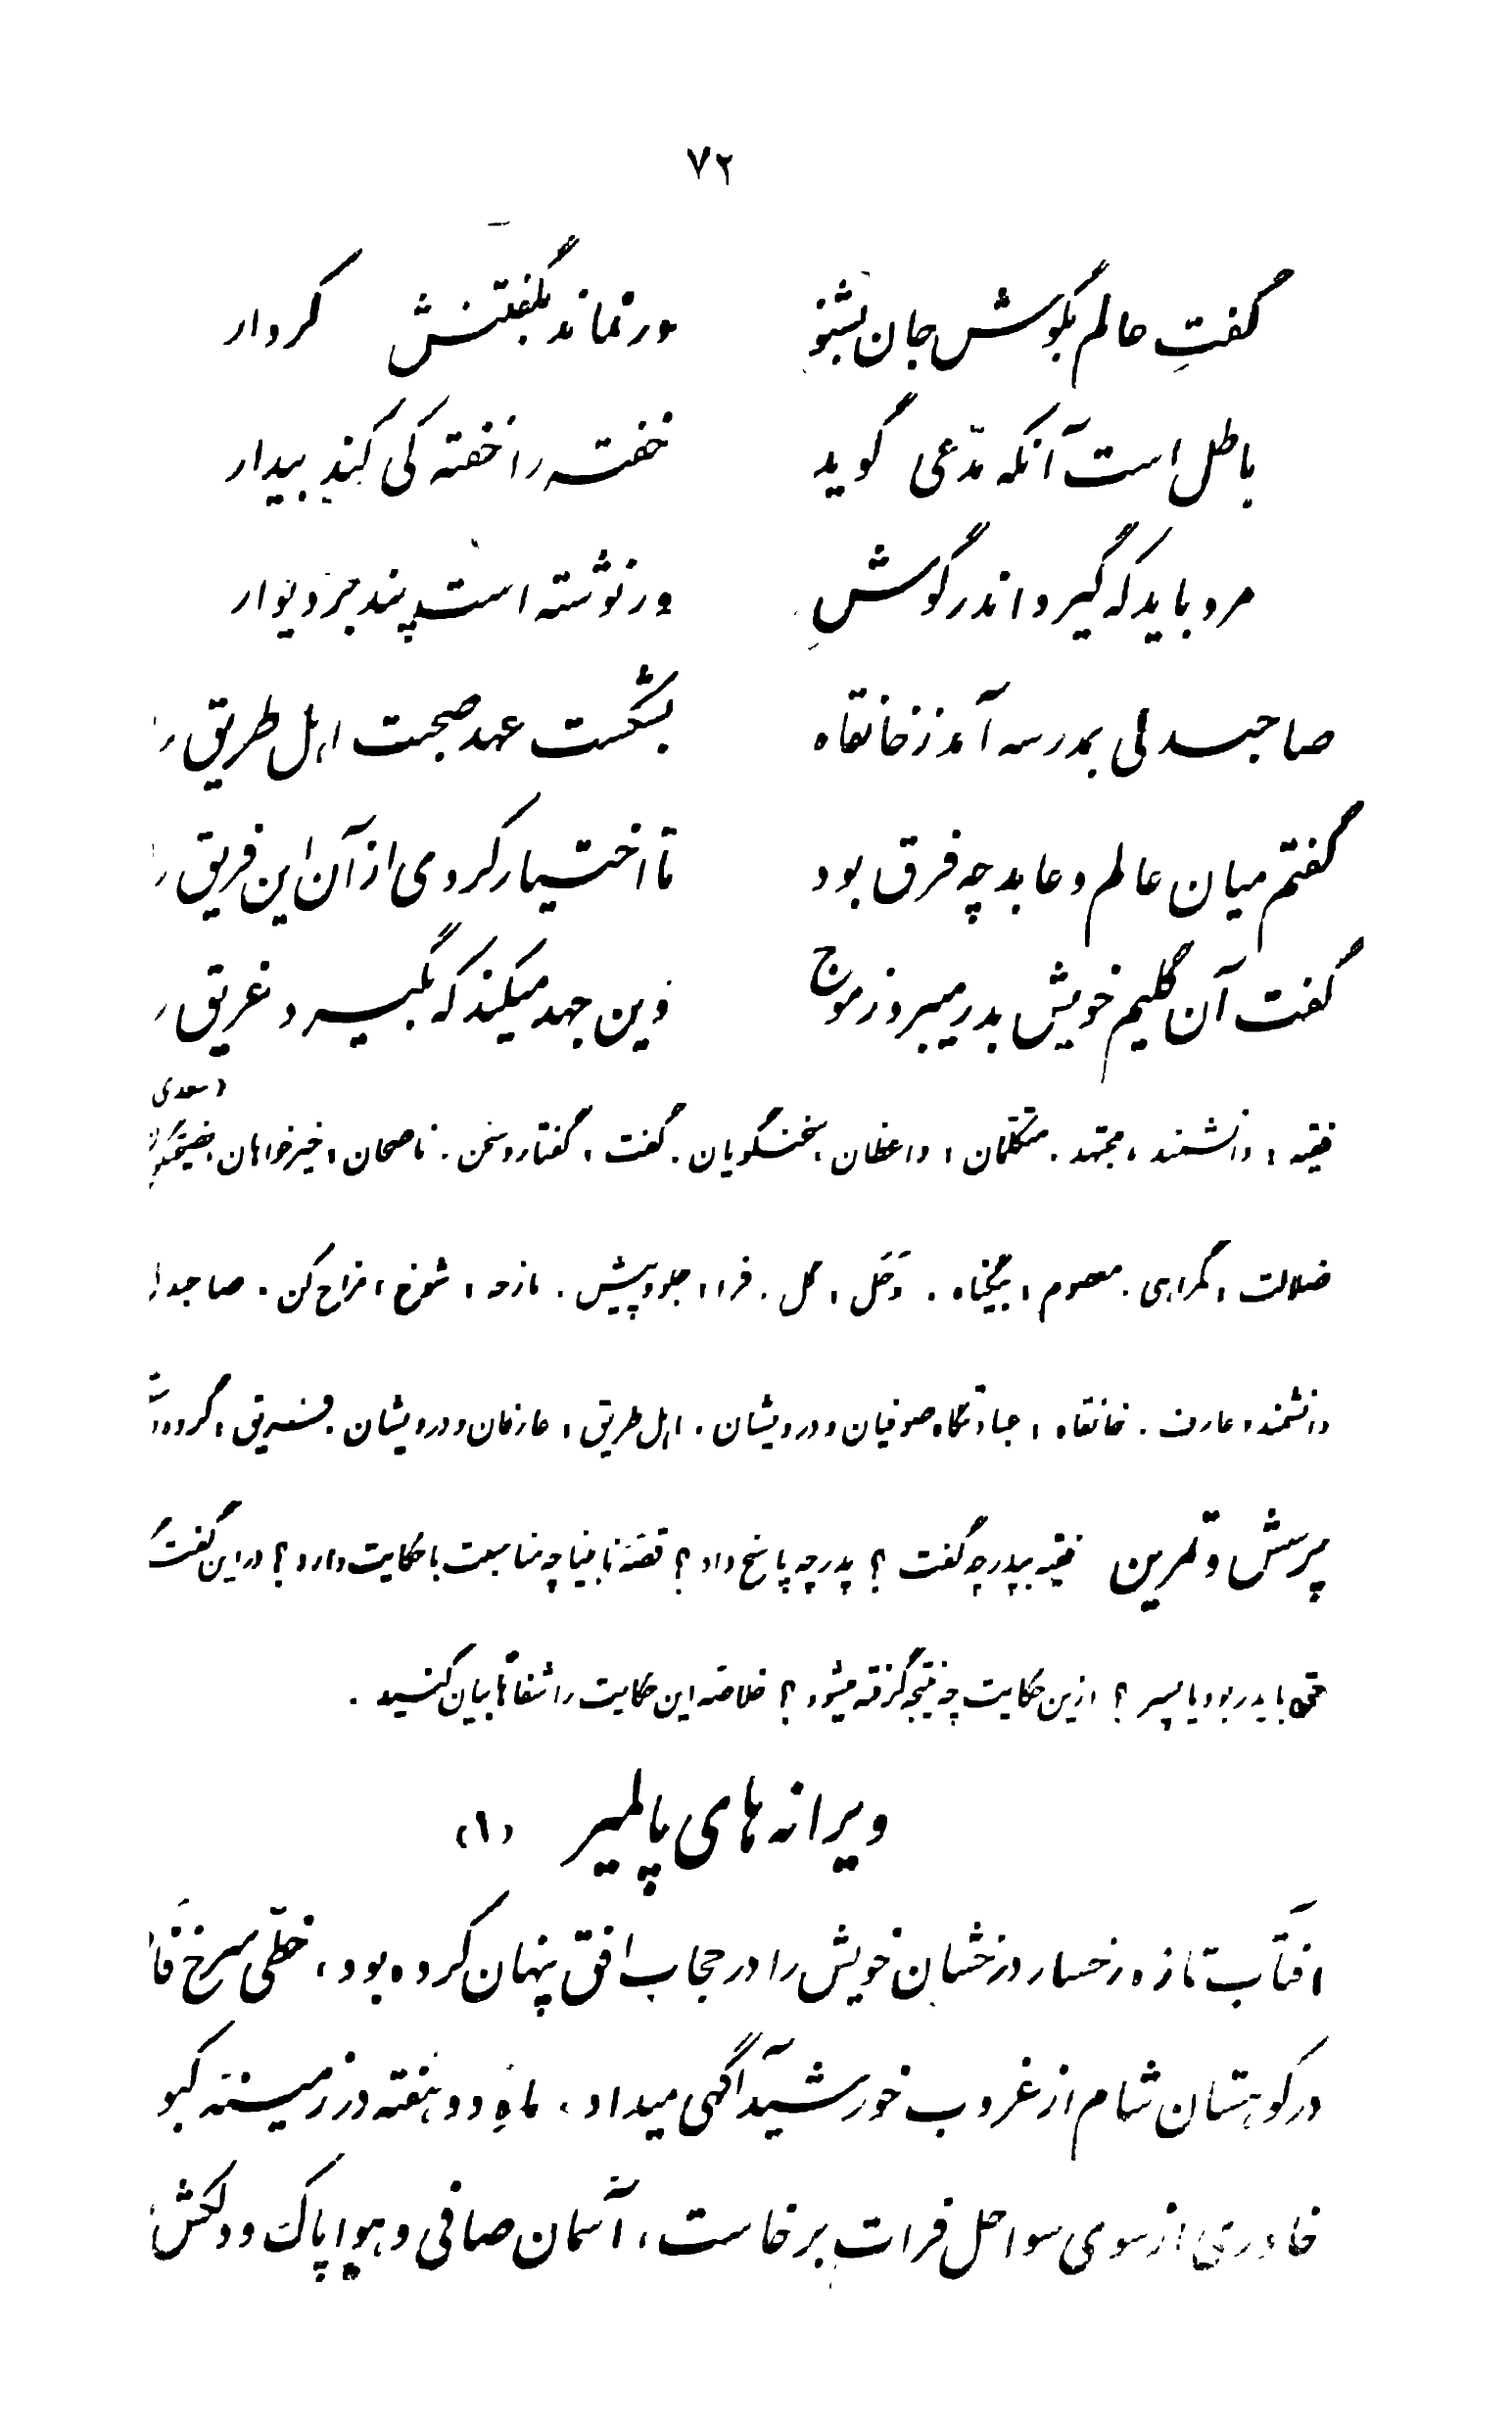 ۷۲
گفتِ عالم بگوش جان بشنو ورنماند بگفتنش کردار
باطل است آنکه مدّعی گوید خفته را خفته کی کند بیدار
مرد باید که گیرد اندر گوش ورنوشته است پند بر دیوار
صاحبدلی بمدرسه آمد ز خانقاه بشکست عهد صحبت اهل طریق را
گفتم میان عالم و عابد چه فرق بود تا اختیار کردی از آن این فریق را
گفت آن گلیم خویش بدر میبرد ز موج وین جهد میکند که بگیرد غریق را
(سعدی
فقیه، دانشمند، مجتهد. متکلمان، واعظان، سخنگویان. گفت، گفتار و سخن. ناصحان، خیرخواهان،
ضلالت، گمراهی. معصوم، بیگناه. وَحَل، گل. فرا، جلو و پیش. مازحه، شوخ، مزاح کن. صاحبدل
دانشمند، عارف. خانقاه، عبادتگاه صوفیان و درویشان. اهل طریق، عارفان و درویشان. فریق، گروه
پرسش و تمرین فقیه بپدر چه گفت؟ پدر چه پاسخ داد؟ قصّهٔ نابینا چه مناسبت با حکایت دارد؟ در این گفت
حق با پدر بود یا پسر؟ ازین حکایت چه نتیجه گرفته میشود؟ خلاصه این حکایت را شفاهاً بیان کنید.
ویرانه های پالمیر (۱)
آفتاب تازه رخسار درخشان خویش را در حجاب افق پنهان کرده بود، خطّی سرخ فا
در کوهستان شام از غروب خورشید آگهی میداد، ماهِ دو هفته در زمینهٔ کبو
خاوری از سوی سواحل فرات برخاست، آسمان صافی و هوا پاک و دلکش